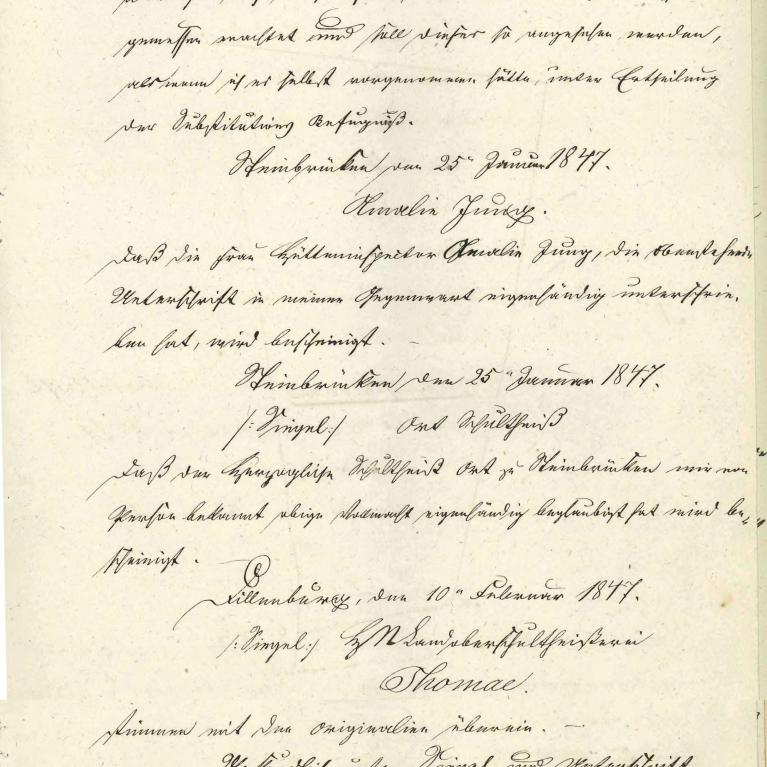 gemessen erachtet und soll dieses so angesehen werden,
als wenn ich es selbst vorgenommen hätte, unter Ertheilung
der Substitutions Befugniß.
Steinbrücken den 25n Januar 1847.
Amalie Jung.
Daß die Frau Hütteninspector Amalie Jung, die obenstehende
Unterschrift in meiner Gegenwart eigenhändig unterschrie-
ben hat, wird bescheinigt. –
Steinbrücken den 25n Januar 1847.
/: Siegel :/ Ort Schultheiß
Daß der Herzogliche Schultheiß Ort zu Steinbrücken mir von
Person bekannt obige Vollmacht eigenhändig beglaubigt hat wird be-
scheinigt. –
Dillenburg, den 10n Februar 1847.
/: Siegel :/ HN Landoberschultheißerei
Thomae.
stimmen mit den Originalien überein. –
Siegel und Unterschrift